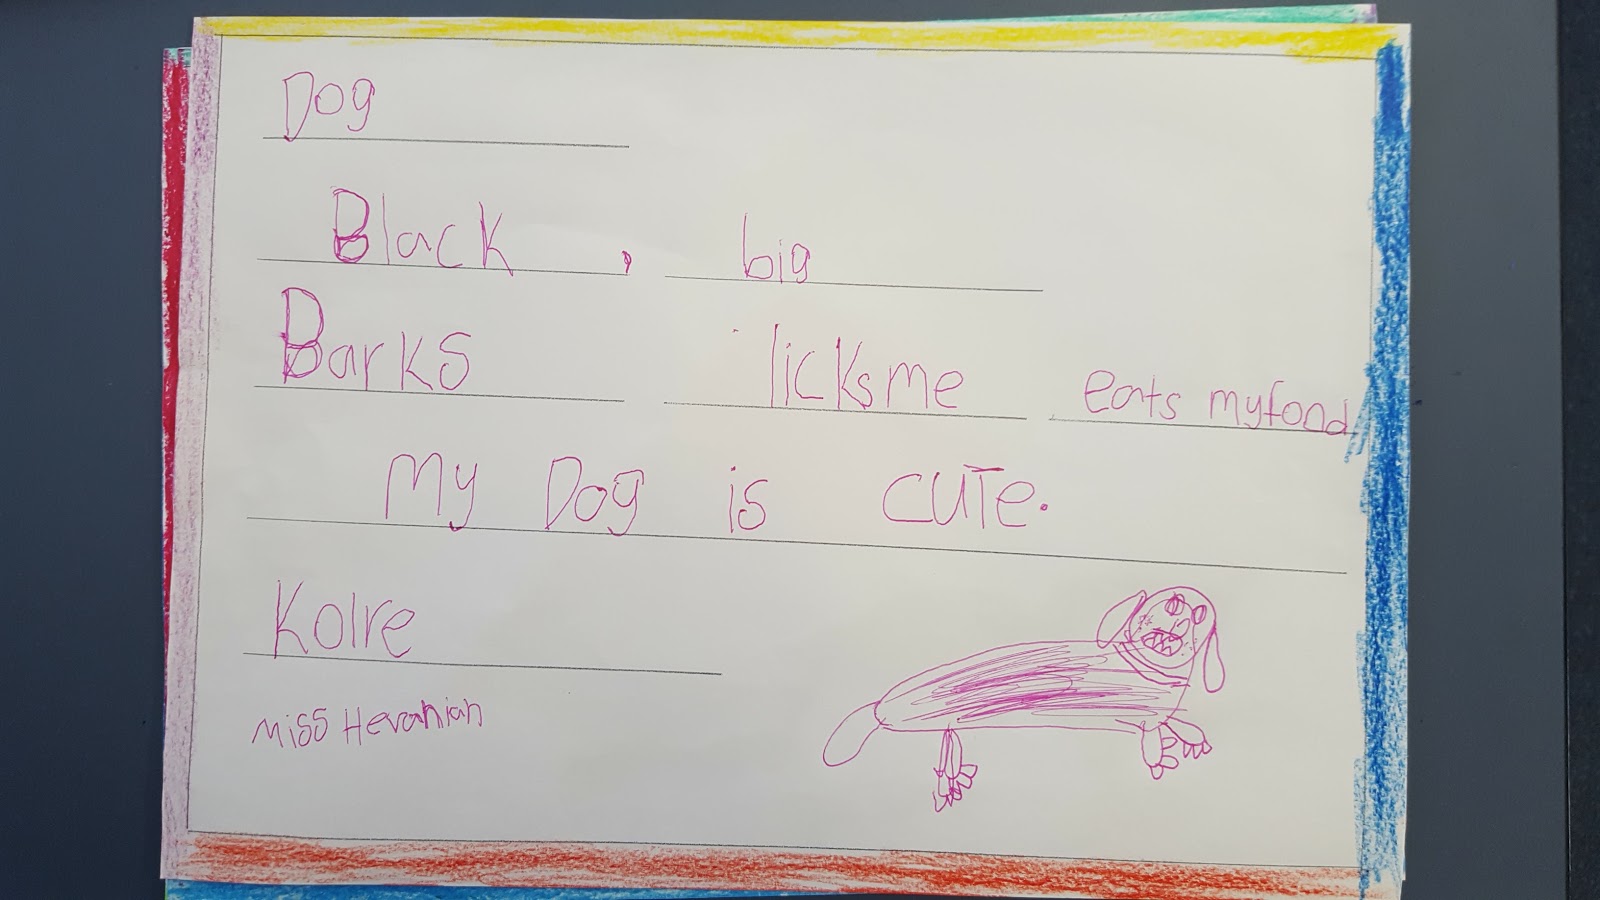 Dog
Black , big
Barks licksme eats myfood
My Dog is cute.
Kolre
Miss Hevanian